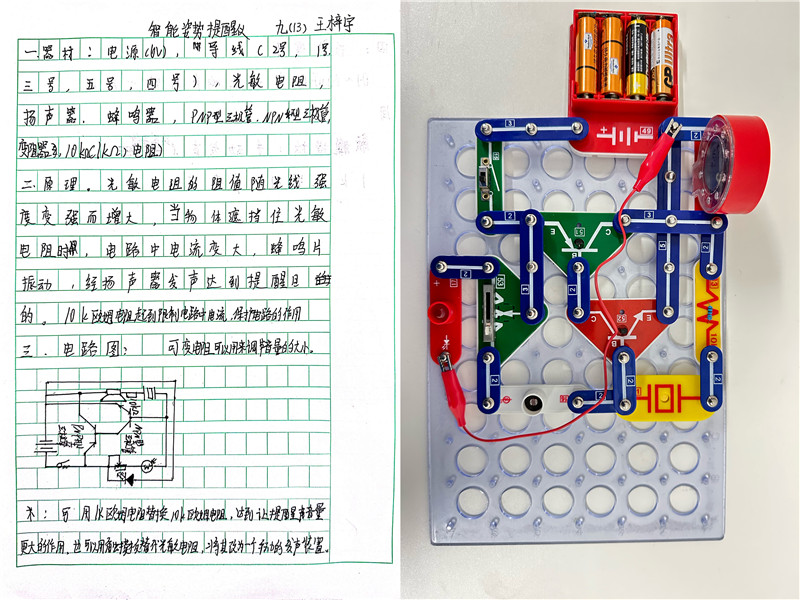 智能姿势提醒仪 九(13) 王梓宇
一.器材:电源(6V),导线(2号,1号
三号,五号,四号),光敏电阻,
扬声器.蜂鸣器,PNP型三极管.NPN型三极管,
变阻器,10kΩ(1kΩ)电阻)
二.原理。光敏电阻的阻值随光线强
度变强而增大,当物体遮挡住光敏
电阻时,电路中电流变大,蜂鸣片
振动,经扬声器发声达到提醒目的
的。10k欧姆电阻起到限制电路中电流,保护电路的作用
三.电路图: 可变电阻可以用来调节音量的大小。
10kΩ
PNP型三极管
NPN型三极管
注:可用1k欧姆电阻替换10k欧姆电阻,达到让提醒声音量
更大的作用.也可以用替光敏电阻,将其改为一个的发声装置。
3
2
49
2
C
51
E
B
2
3
2
3
5
2
2
53
2
52
E
C
B
2
2
2
2